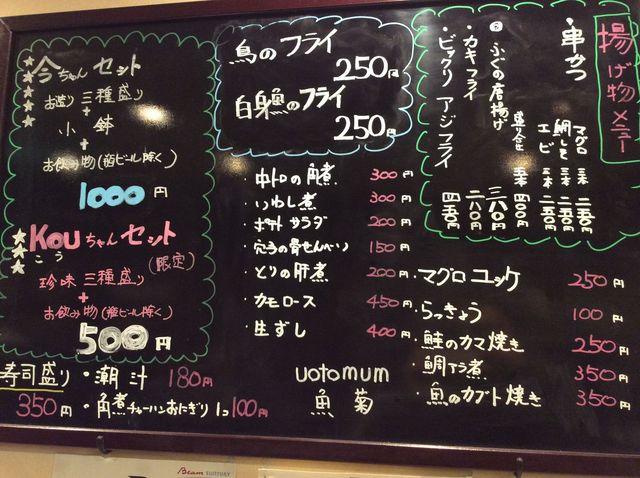 ★今ちゃんセット
お造り三種盛り
+
小鉢
+
お飲み物(瓶ビール除く)
1000円
★Kouちゃんセット
こう
(限定)
珍味三種盛り
+
お飲み物(瓶ビール除く)
500円
寿司盛り
350円
・潮汁 180円
・角煮チャーハンおにぎり1コ100円
鳥のフライ
250円
白身魚のフライ
250円
・中トロの角煮 300円
・いわし煮 300円
・ポテトサラダ 200円
・穴子の骨せんべい 150円
・とりの肝煮 200円
・カモロース 450円
・生ずし 400円
uotomum
魚菊
揚げ物メニュー
・串かつ
マグロ 二本 二五〇円
鯛しそ 二本 二五〇円
エビ 二本 二〇〇円
・ふぐの唐揚げ 三八〇円
・カキフライ 二八〇円
・ビックリアジフライ 四五〇円
・マグロユッケ 250円
・らっきょう 100円
・鮭のカマ焼き 250円
・鯛アラ煮 350円
・魚のカブト焼き 350円
Beam SUNTORY